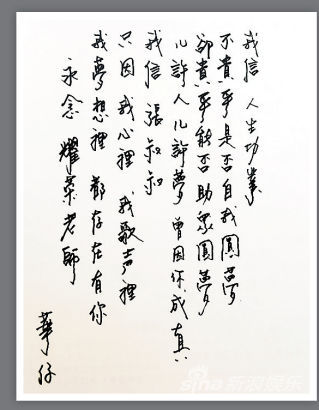 我信 人生功業
不貴乎是否自我圓夢
卻貴乎能否助眾圓夢
幾許人幾許夢 曾因你成真
我信 張叔叔
只因我心裡 我歌声裡
我夢想裡 都存在有你
永念 耀榮老師
華仔
sina新浪娱乐